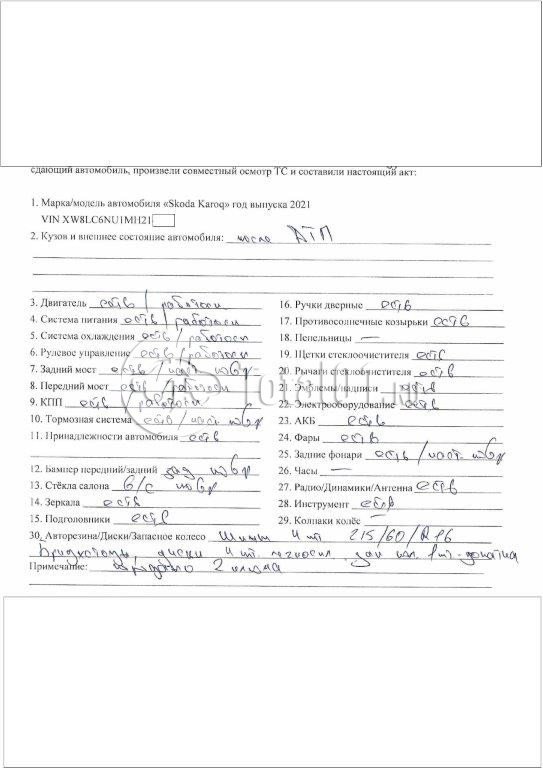 сдающий автомобиль, произвели совместный осмотр ТС и составили настоящий акт:
1. Марка/модель автомобиля «Skoda Karoq» год выпуска 2021
VIN XW8LC6NU1MH21
2. Кузов и внешнее состояние автомобиля: после ДТП
3. Двигатель есть / работоси
4. Система питания есть / работоси
5. Система охлаждения есть / работоси
6. Рулевое управление есть / работоси
7. Задний мост есть / част. повр
8. Передний мост есть / работоси
9. КПП есть / работоси
10. Тормозная система есть / част повр
11. Принадлежности автомобиля есть
12. Бампер передний/задний зад повр
13. Стёкла салона б/с повр
14. Зеркала есть
15. Подголовники есть
16. Ручки дверные есть
17. Противосолнечные козырьки есть
18. Пепельницы —
19. Щетки стеклоочистителя есть
20. Рычаги стеклоочистителя есть
21. Эмблемы/надписи есть
22. Электрооборудование есть
23. АКБ есть
24. Фары есть
25. Задние фонари есть / част. повр
26. Часы —
27. Радио/Динамики/Антенна есть
28. Инструмент есть
29. Колпаки колёс —
30. Авторезина/Диски/Запасное колесо Шины 4 шт 215/60/R16
Бриджстоун, диски 4 шт.
Примечание: передано 2 ключа